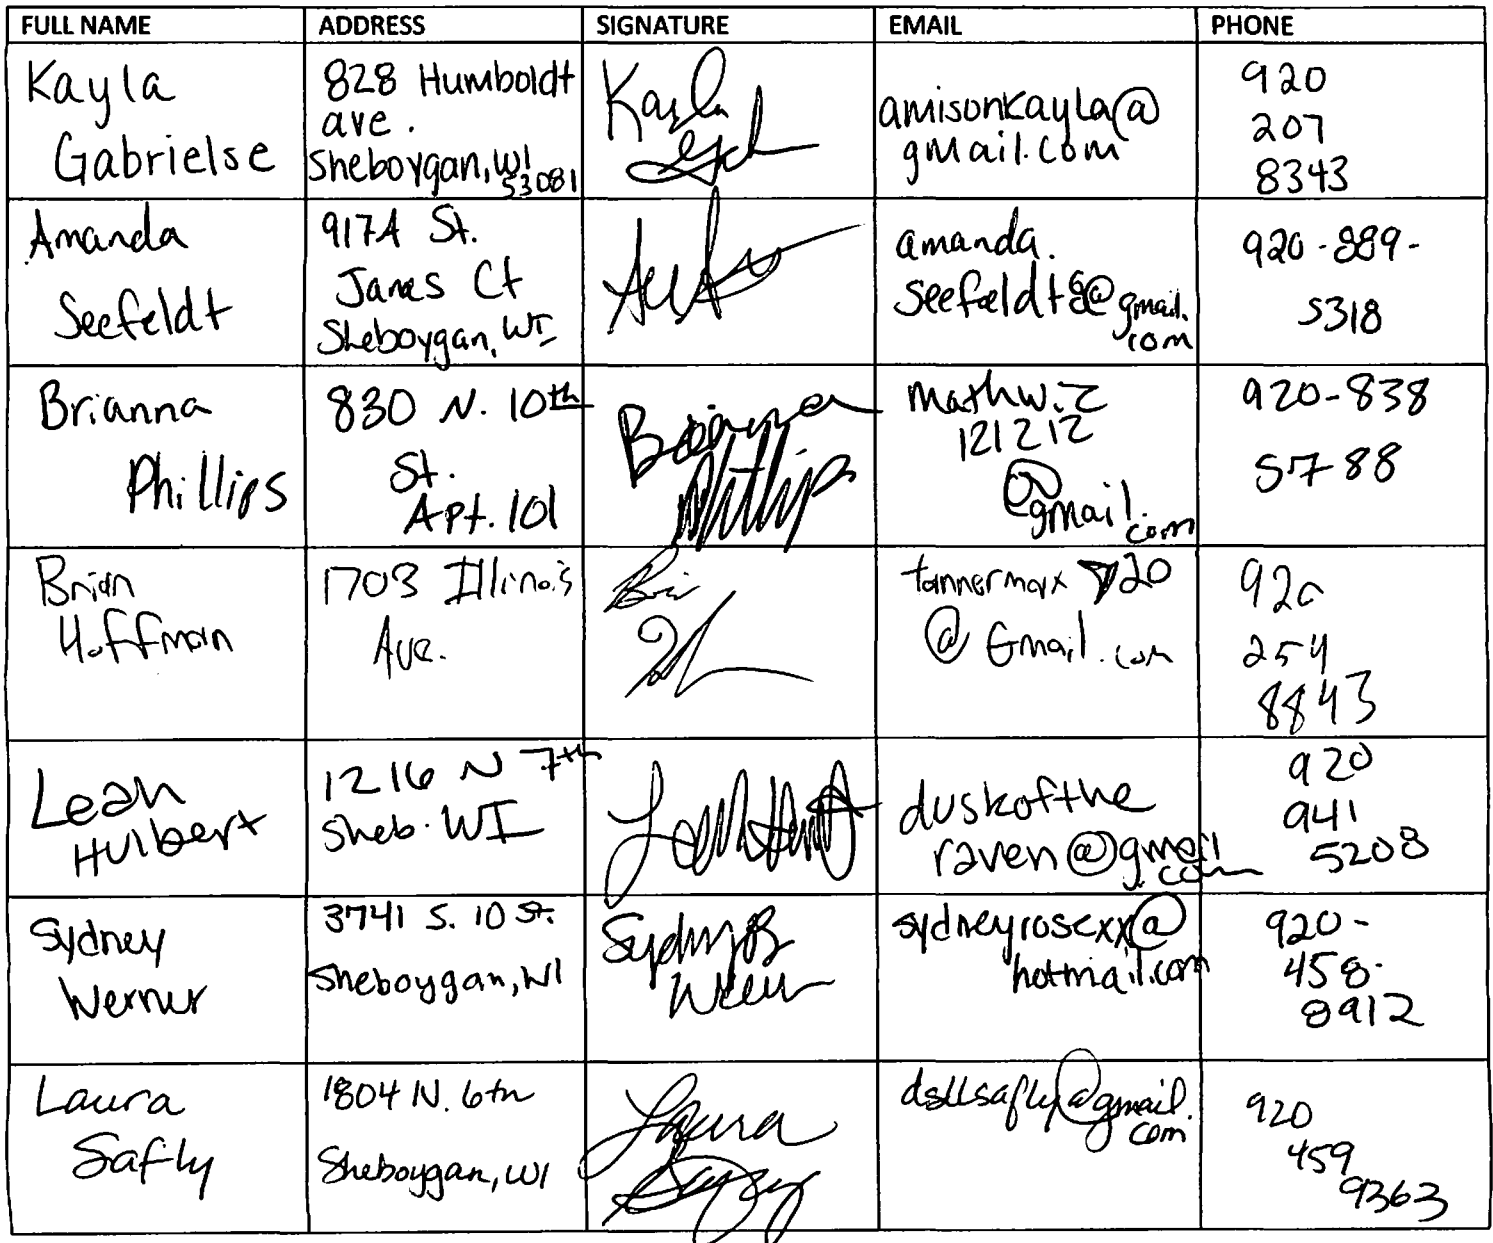 FULL NAME ADDRESS SIGNATURE EMAIL PHONE
Kayla
Gabrielse
828 Humboldt
ave.
Sheboygan, WI
53081
Kayla
amisonkayla@
gmail.com
920
207
8343
Amanda
Seefeldt
917A St.
James Ct
Sheboygan, WI
amanda.
seefeldt@gmail.
com
920-889-
5318
Brianna
Phillips
830 N. 10th
St.
Apt. 101
Brianna
Phillips
mathwiz
121212
@
gmail.
com
920-838
5788
Brian
Hoffman
1703 Illinois
Ave.
Bri
tannermarx 920
@ Gmail.com
920
254
8843
Leah
Hulbert
1216 N 7th
Sheb. WI
duskofthe
raven@gmail
.com
920
941
5208
Sydney
Werner
3741 S. 10 St.
Sheboygan, WI
Sydney B
sydneyrosexx@
hotmail.com
920-
458-
8912
Laura
Safly
1804 N. 6th
Sheboygan, WI
Laura
dsllsafly@gmail.
com
920
459
9363